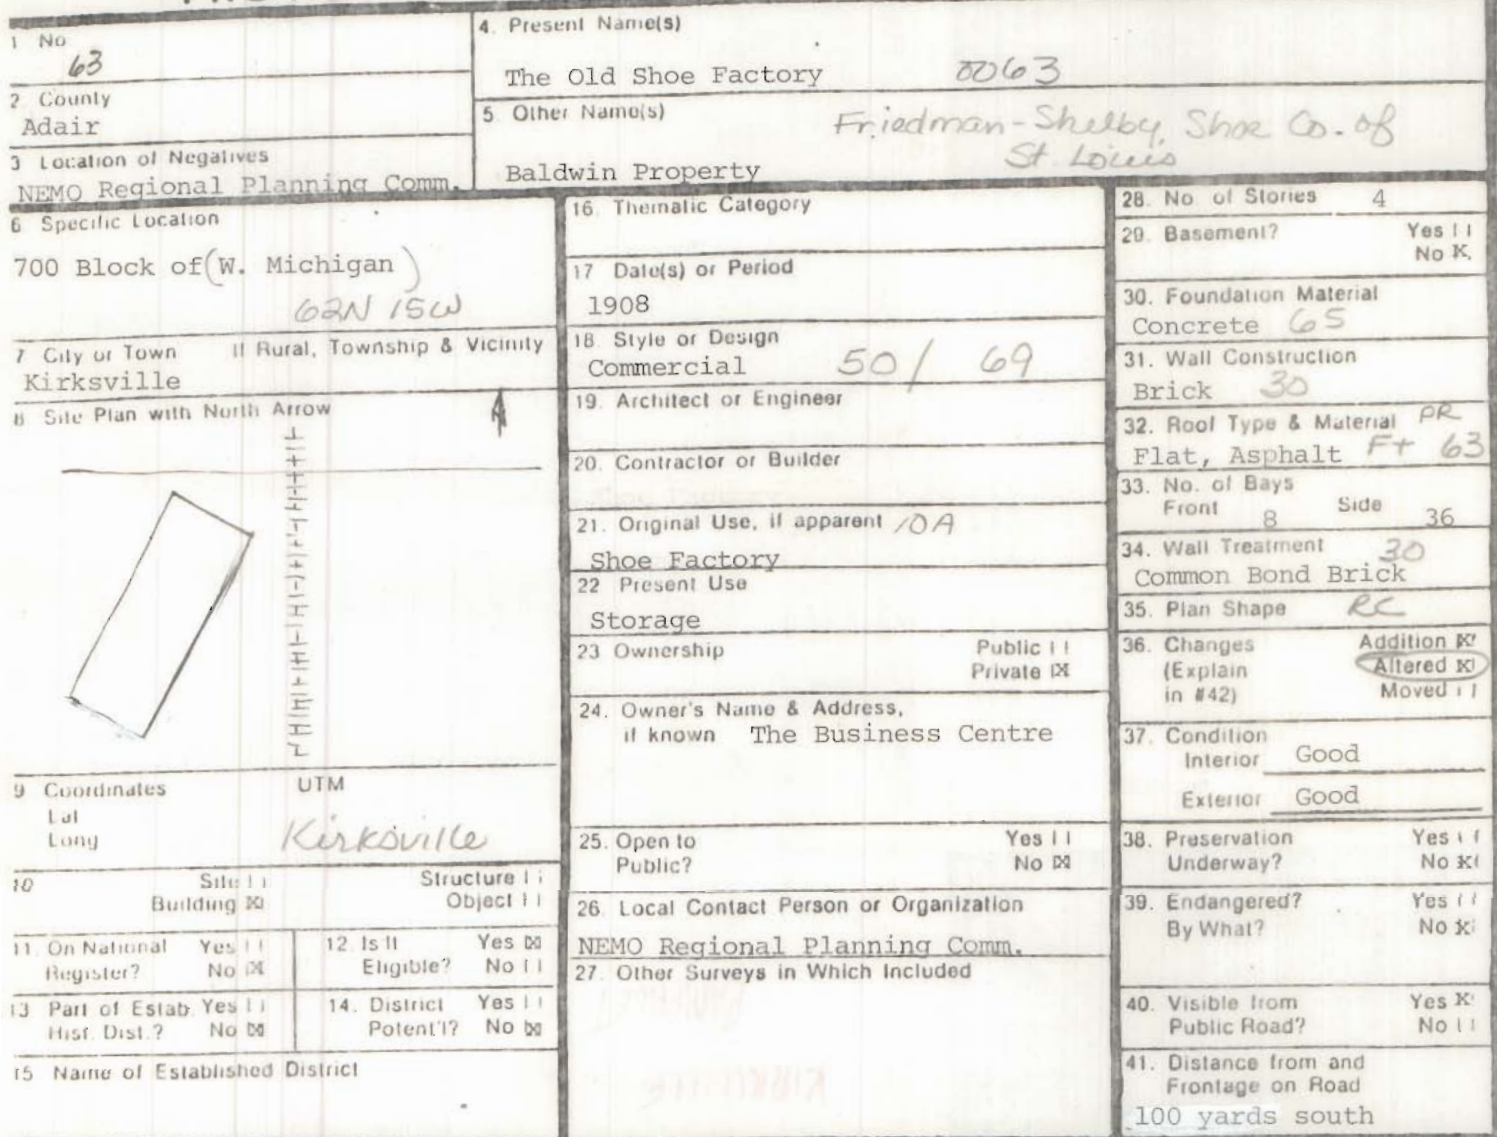 1 No
63
2 County
Adair
3 Location of Negatives
NEMO Regional Planning Comm.
4. Present Name(s)
The Old Shoe Factory 0063
5 Other Name(s)
Friedman-Shelby Shoe Co. of
St. Louis
Baldwin Property
6 Specific Location
700 Block of (W. Michigan)
62N 15W
7 City or Town If Rural, Township & Vicinity
Kirksville
8 Site Plan with North Arrow
9 Coordinates UTM
Lat
Long
Kirksville
10 Site Structure
Building [X] Object
11. On National Register? Yes No [X]
12. Is It Eligible? Yes [X] No
13 Part of Estab. Hist. Dist.? Yes No [X]
14. District Potent'l? Yes No [X]
15 Name of Established District
16. Thematic Category
17 Date(s) or Period
1908
18. Style or Design
Commercial 50/ 69
19. Architect or Engineer
20. Contractor or Builder
21. Original Use, if apparent 10A
Shoe Factory
22 Present Use
Storage
23 Ownership Public
Private [X]
24. Owner's Name & Address,
if known The Business Centre
25. Open to Yes
Public? No [X]
26. Local Contact Person or Organization
NEMO Regional Planning Comm.
27. Other Surveys in Which Included
28. No. of Stories 4
29. Basement? Yes
No X
30. Foundation Material
Concrete 65
31. Wall Construction
Brick 30
32. Roof Type & Material PR
Flat, Asphalt Ft 63
33. No. of Bays
Front 8 Side 36
34. Wall Treatment 30
Common Bond Brick
35. Plan Shape RC
36. Changes Addition [X]
(Explain Altered [X]
in #42) Moved
37. Condition
Interior Good
Exterior Good
38. Preservation Yes
Underway? No [X]
39. Endangered? Yes
By What? No [X]
40. Visible from Yes [X]
Public Road? No
41. Distance from and
Frontage on Road
100 yards south